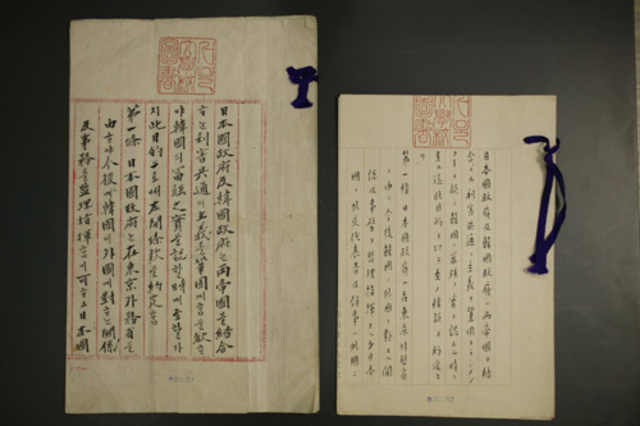 서울
大學校
圖書
日本國政府及韓國政府는兩帝國을結合
ᄒᆞ는利害共通의主義를鞏固케ᄒᆞᆷ을欲ᄒᆞ
야韓國의富强之實을認ᄒᆞᆯ時에至ᄒᆞᆯ가
지此目的으로써左開條款을約定ᄒᆞᆷ
第一條 日本國政府는在東京外務省을
由ᄒᆞ야今後에韓國이外國에對ᄒᆞ는關係
及事務를監理指揮ᄒᆞᆷ이可ᄒᆞ고日本國
서울
大學校
圖書
日本國政府及韓國政府ハ兩帝國ヲ結
合スル利害共通ノ主義ヲ鞏固ナラシメン
コトヲ欲シ韓國ノ富强ノ實ヲ認ムル時ニ
至ル迄此目的ヲ以テ左ノ條款ヲ約定セ
リ
第一條 日本國政府ハ在東京外務省
ニ由リ今後韓國ノ外國ニ對スル關
係及事務ヲ監理指揮スヘク日本
國ノ外交代表者及領事ハ外國ニ